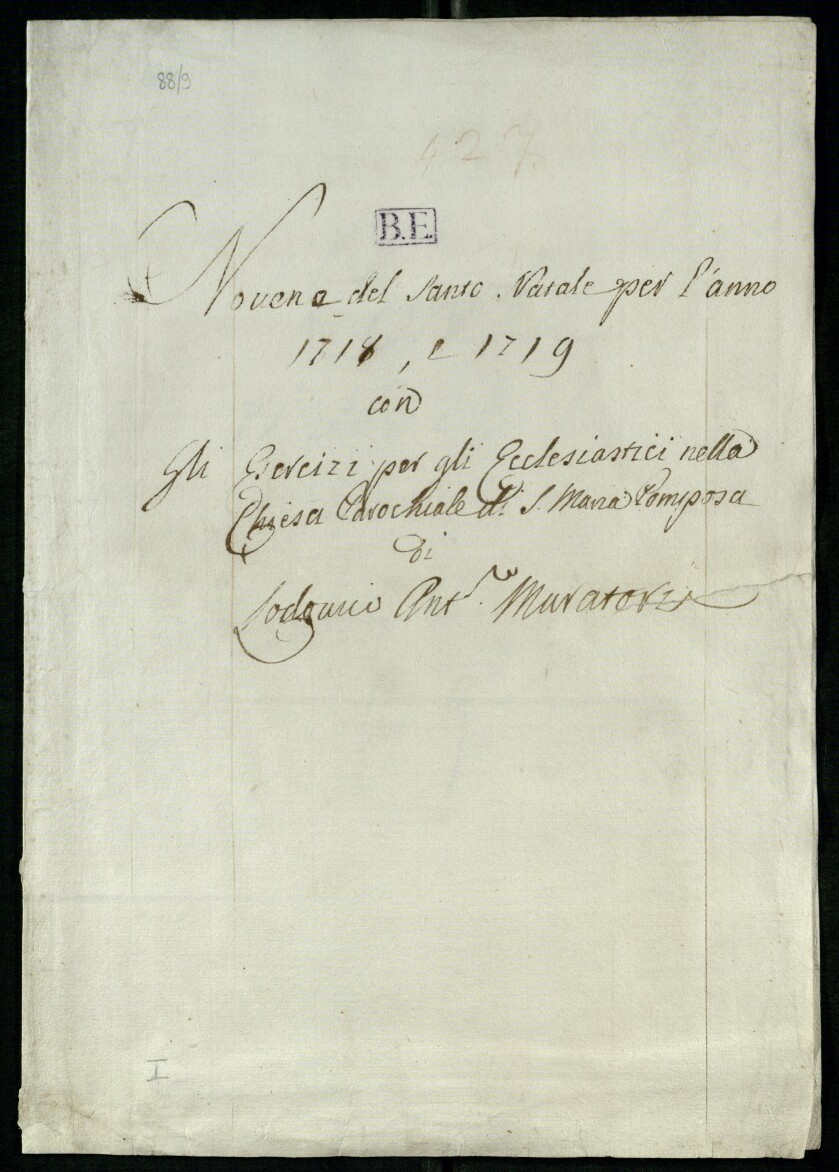 88/9
427.
B.E.
Novena del Santo Natale per l'anno
1718, e 1719
con
Gli Esercizi per gli Ecclesiastici nella
Chiesa Parochiale di S. Maria Pomposa
Di
Lodovico Ant.º Muratori
I